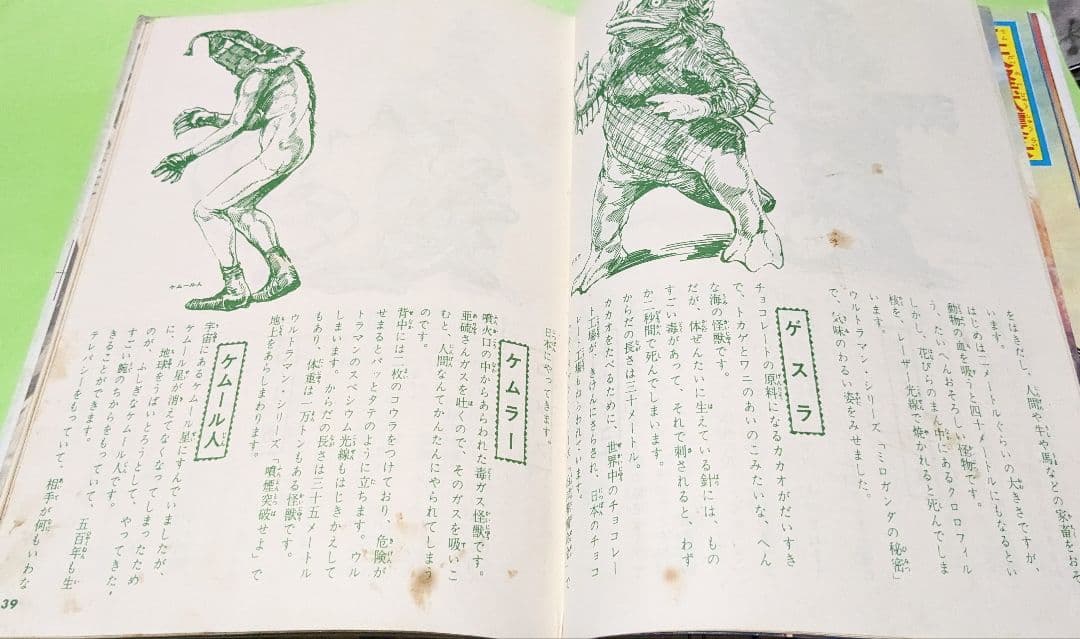 をはきだし、人間や牛や馬などの家畜をおそ
います。
はじめは二メートルぐらいの大きさですが、
動物の血を吸うと四十メートルにもなるとい
う、たいへんおそろしい怪物です。
しかし、花びらのまん中にあるクロロフィル
核を、レーザー光線で焼かれると死んでしま
います。
ウルトラマン・シリーズ「ミロガンダの秘密」
で、気味のわるい姿をみせました。
ゲスラ
チョコレートの原料になるカカオがだいすき
で、トカゲとワニのあいのこみたいな、へん
な海の怪獣です。
だが、体ぜんたいに生えている針には、もの
すごい毒があって、それで刺されると、わず
か二秒間で死んでしまいます。
からだの長さは三十メートル。
カカオをたべるために、世界中のチョコレー
ト工場が、きけんにさらされ、日本のチョコ
日本にやってきます。
ケムラー
噴火口の中からあらわれた毒ガス怪獣です。
亜硫さんガスを吐くので、そのガスを吸いこ
むと、人間なんてかんたんにやられてしまう
のです。
背中には二枚のコウラをつけており、危険が
せまるとパッとタテのように立ちます。ウル
トラマンのスペシウム光線もはじきかえして
しまいます。からだの長さは三十五メートル
もあり、体重は一万トンもある怪獣です。
ウルトラマン・シリーズ「噴煙突破せよ」で
地上をあらしまわります。
ケムール人
宇宙にあるケムール星にすんでいましたが、
ケムール星が消えてなくなってしまったため
に、地球をうばいとろうとして、やってきた、
のが、ふしぎなケムール人です。
すごい腕のちからをもっていて、五百年も生
きることができます。
テレパシーをもっていて、相手が何もいわな
ケムール人
39